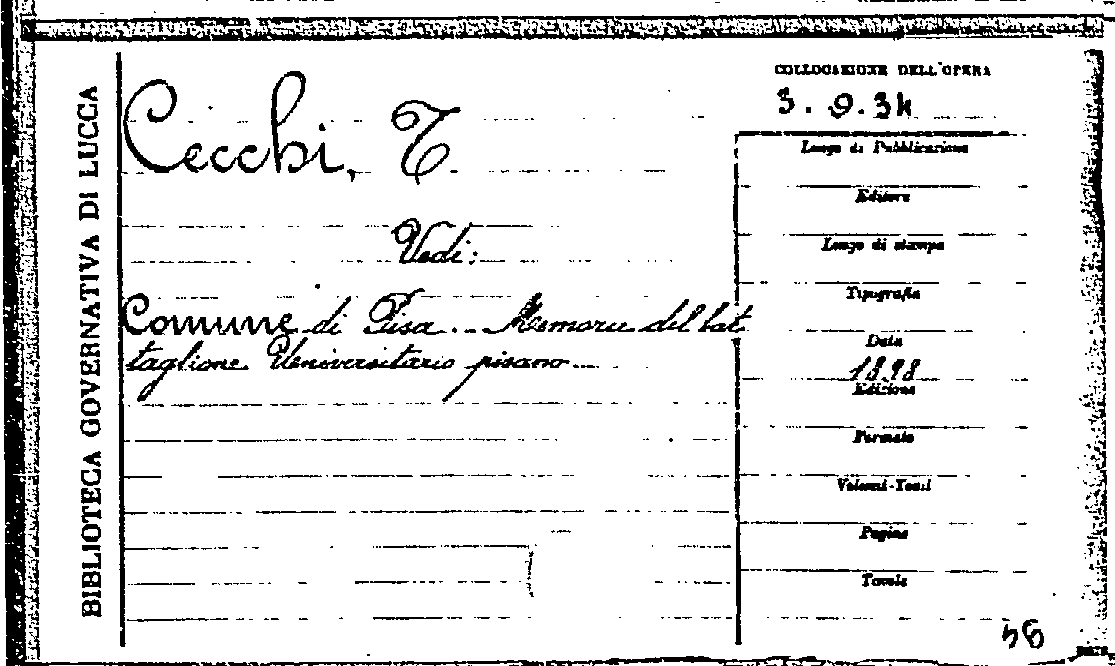 BIBLIOTECA GOVERNATIVA DI LUCCA
COLLOCAZIONE DELL'OPERA
3. 9. 34
Cecchi, T.
Vedi:
Comune di Pisa. - Memorie del bat
taglione Universitario pisano...
Luogo di Pubblicazione
Editore
Luogo di stampa
Tipografia
Data
1898
Edizione
Formato
Volumi-Tomi
Pagine
Tavole